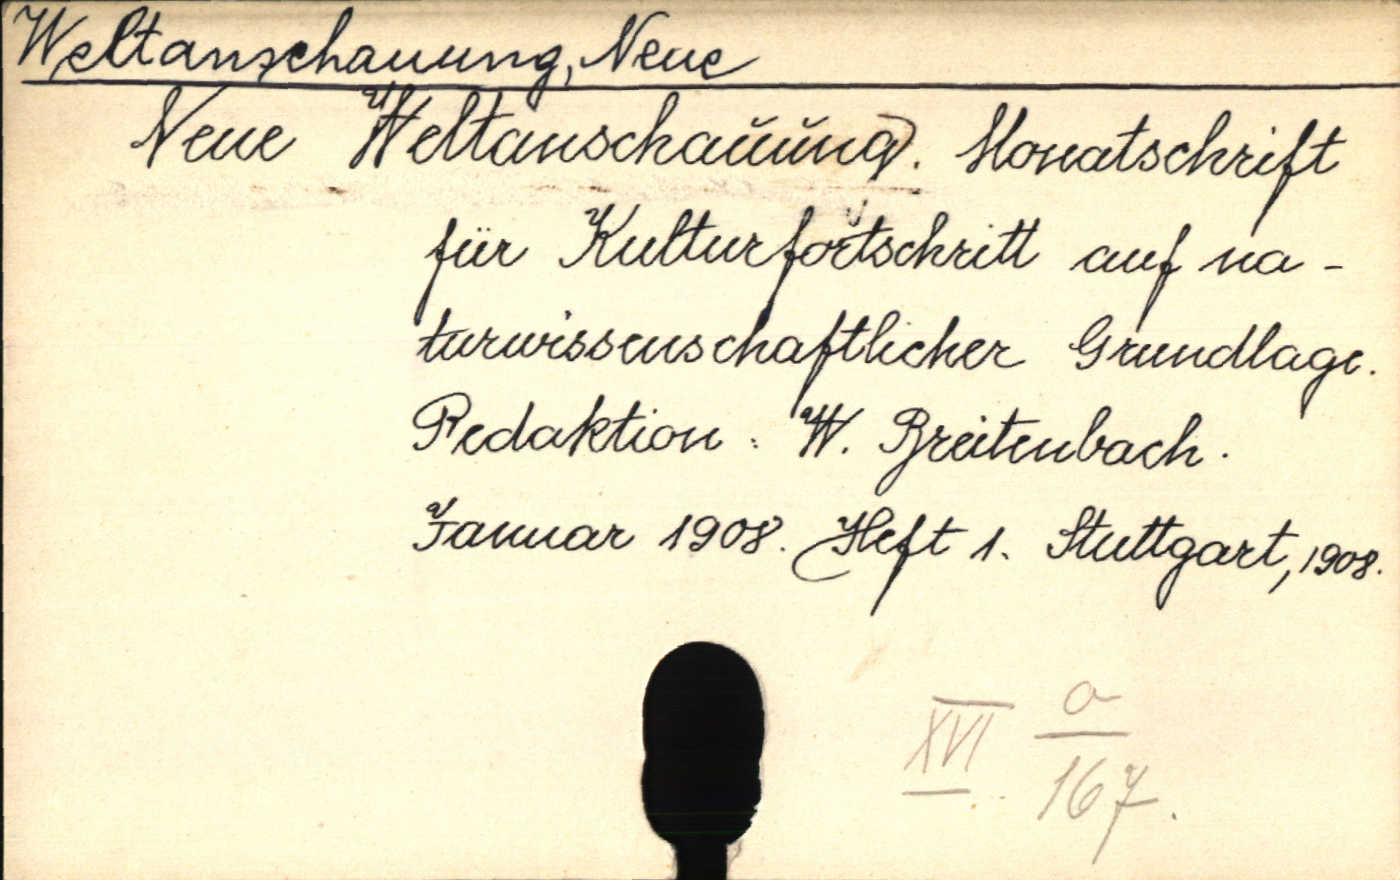 Weltanschauung, Neue
Neue Weltanschauung. Monatschrift
für Kulturfortschritt auf na-
turwissenschaftlicher Grundlage.
Redaktion: W. Breitenbach.
Januar 1908. Heft 1. Stuttgart, 1908.
XVI a
167.